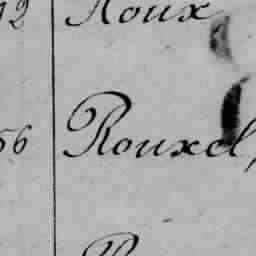 Roux
56 Rouxel,